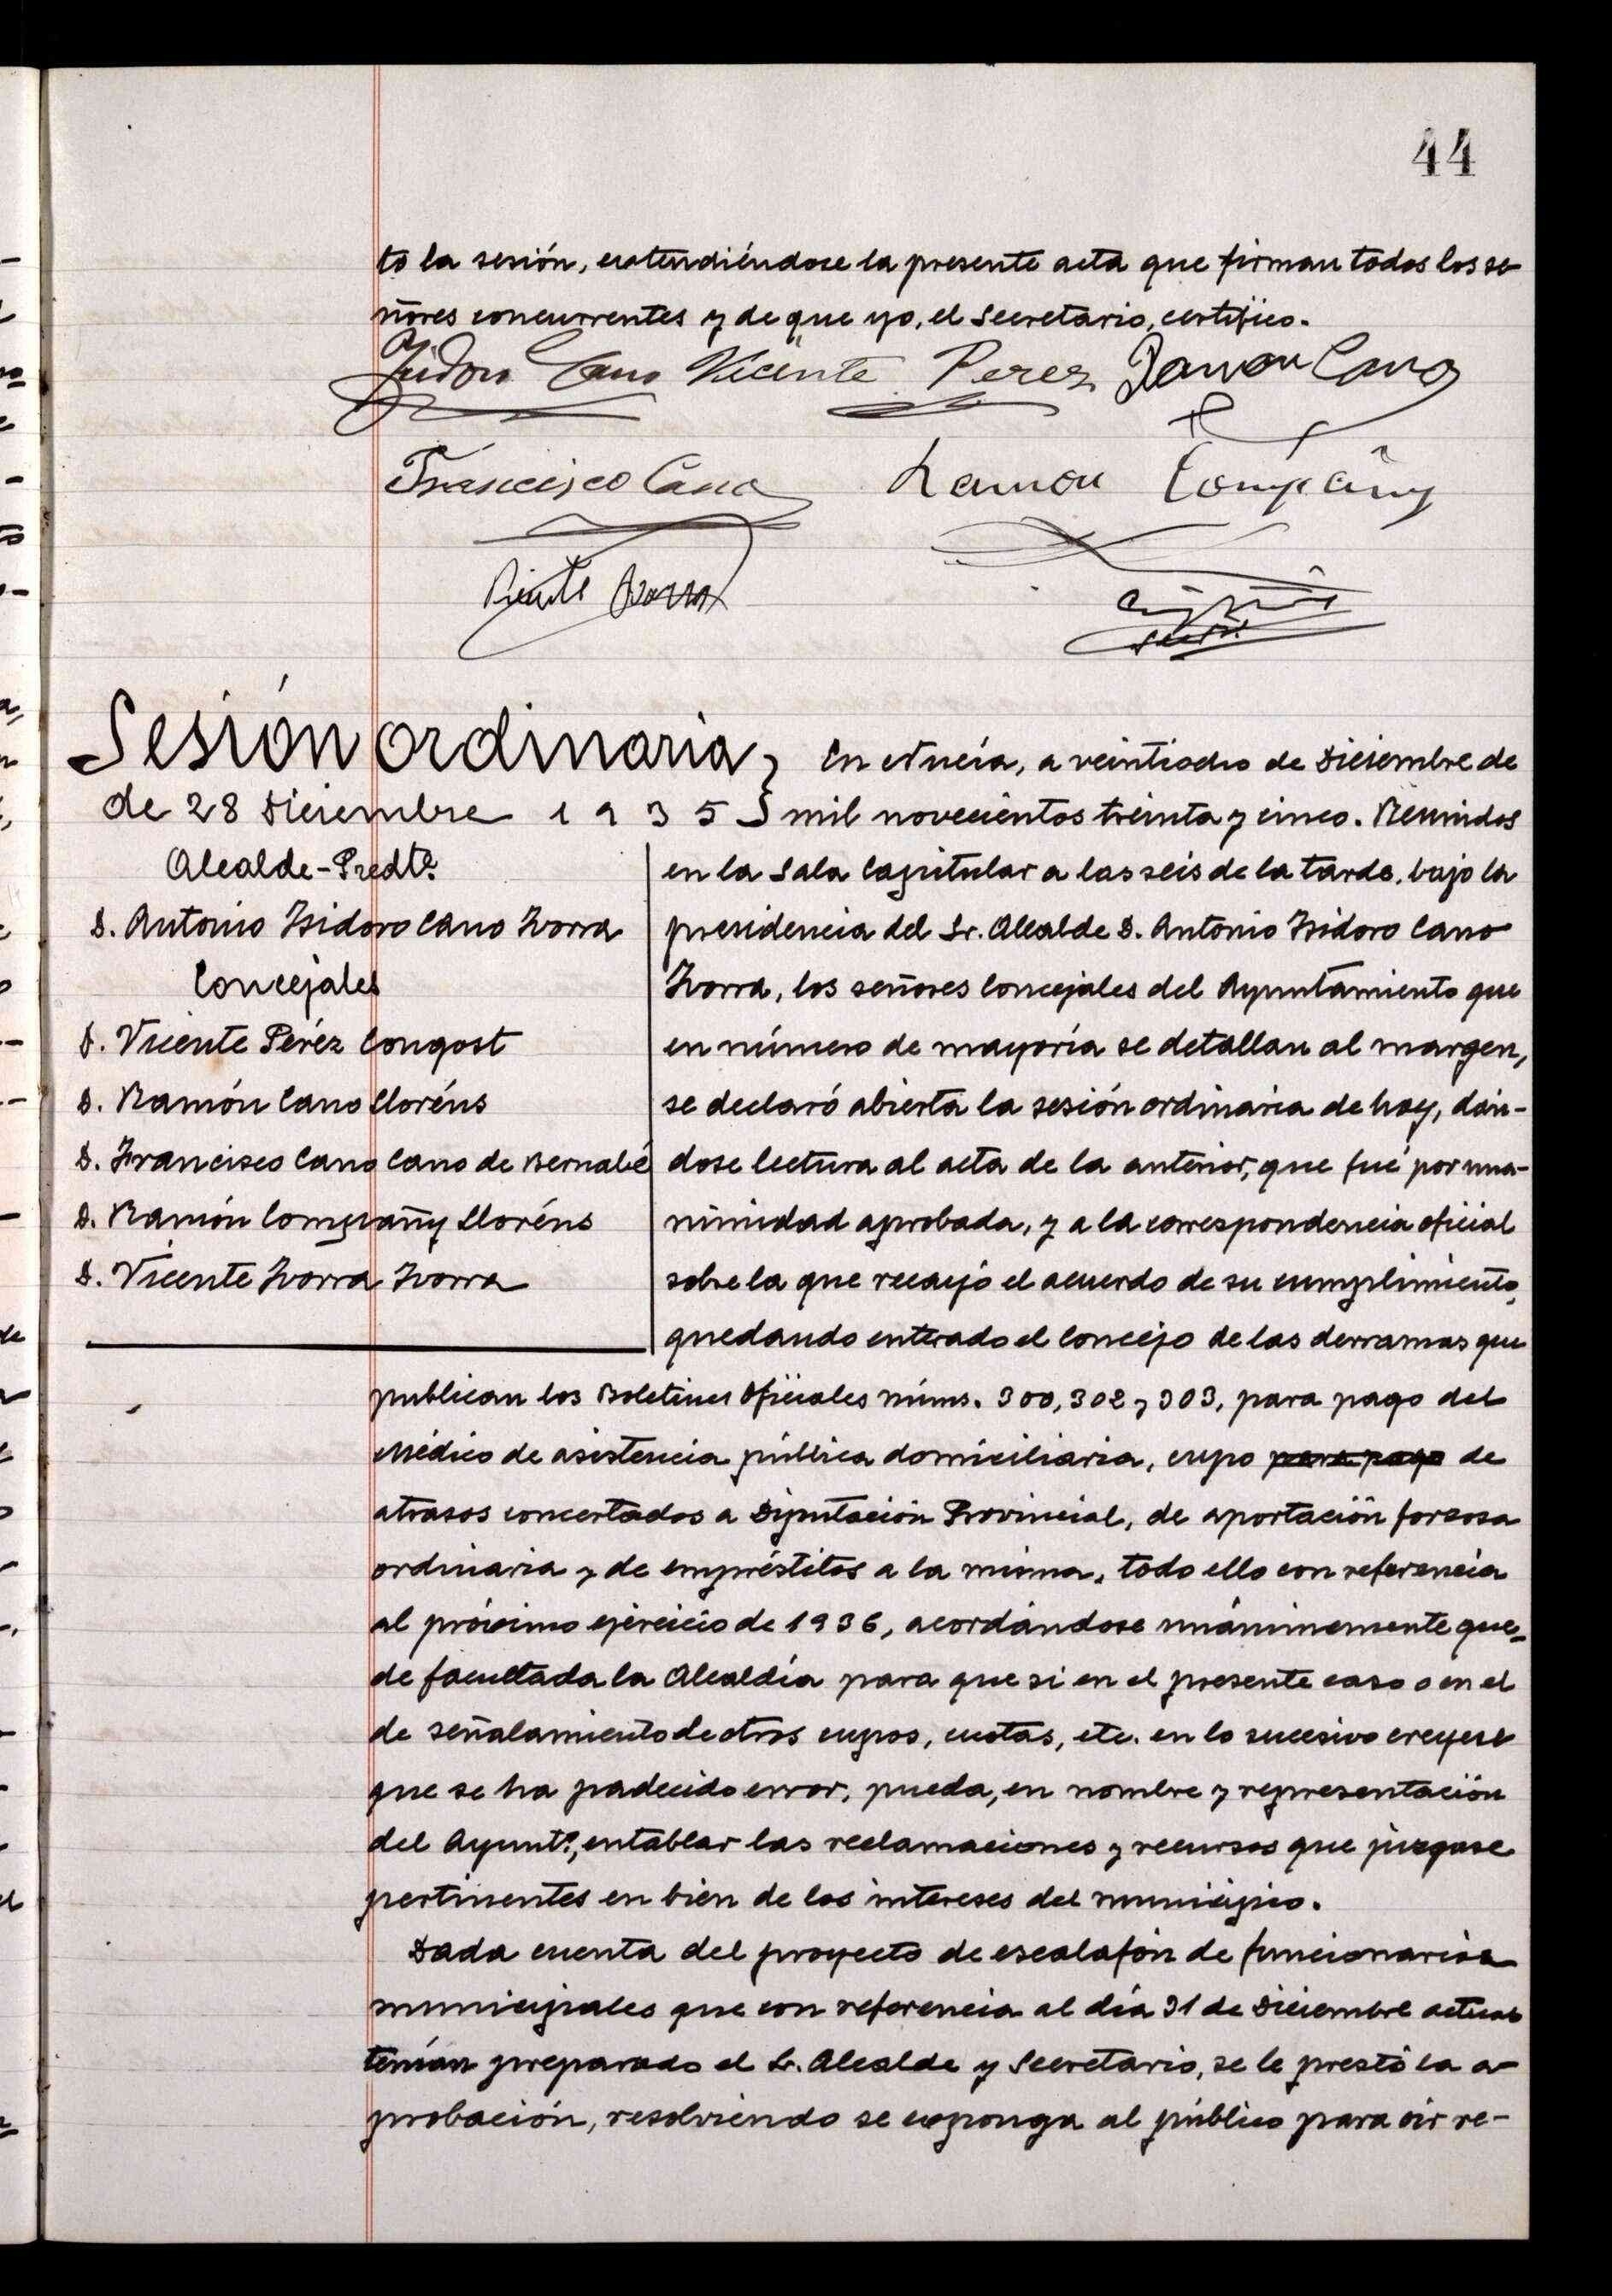 44
to la sesión, extendiéndose la presente acta que firman todos los se-
ñores concurrentes y de que yo, el Secretario, certifico.
A. Isidoro Cano Vicente Perez Ramon Cano
Francisco Cano Ramon Compañy
Vicente Ivorra
Sesión ordinaria
de 28 Diciembre 1935
Alcalde-Predte.
D. Antonio Isidoro Cano Ivorra
Concejales
D. Vicente Pérez Congost
D. Ramón Cano Lloréns
D. Francisco Cano Cano de Bernabé
D. Ramón Compañy Lloréns
D. Vicente Ivorra Ivorra
En Nucía, a veintiocho de Diciembre de
mil novecientos treinta y cinco. Reunidos
en la Sala Capitular a las seis de la tarde, bajo la
presidencia del Sr. Alcalde D. Antonio Isidoro Cano
Ivorra, los señores Concejales del Ayuntamiento que
en número de mayoría se detallan al margen,
se declaró abierta la sesión ordinaria de hoy, dán-
dose lectura al acta de la anterior, que fué por una-
nimidad aprobada, y a la correspondencia oficial
sobre la que recayó el acuerdo de su cumplimiento,
quedando enterado el Concejo de las derramas que
publican los Boletines Oficiales núms. 300, 302 y 303, para pago del
Médico de asistencia pública domiciliaria, cupo para pago de
atrasos concertados a Diputación Provincial, de aportación forzosa
ordinaria y de empréstitos a la misma, todo ello con referencia
al próximo ejercicio de 1936, acordándose unánimemente que-
de facultada la Alcaldía para que si en el presente caso o en el
de señalamiento de otros cupos, cuotas, etc. en lo sucesivo creyese
que se ha padecido error, pueda, en nombre y representación
del Ayuntº, entablar las reclamaciones y recursos que juzgase
pertinentes en bien de los intereses del municipio.
Dada cuenta del proyecto de escalafón de funcionarios
municipales que con referencia al día 31 de Diciembre actual
tenían preparado el Sr. Alcalde y Secretario, se le prestó la a-
probación, resolviendo se exponga al público para oir re-